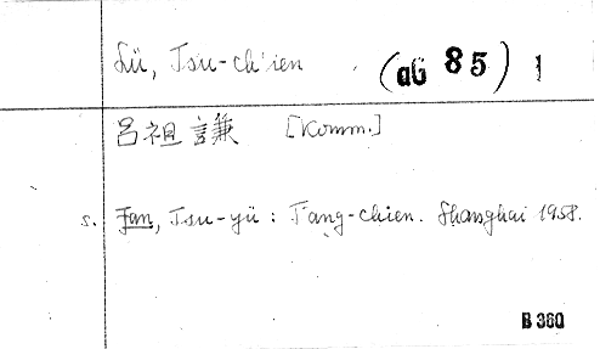 Lü, Tsu-ch'ien (aG 85) 1
呂祖謙 [Komm.]
s. Fan, Tsu-yü: T'ang-chien. Shanghai 1958.
B 360